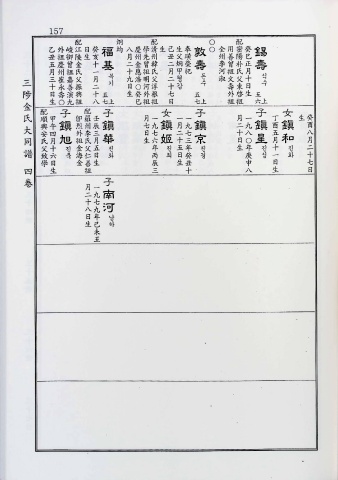 157
錫壽 석수 上 五六
癸巳正月十日生
配密陽朴氏父來啓祖
用善曾祖文壽外祖
全州李河淑
〇〇
敦壽 돈수 上 五七
生父炳甲
己丑二月二十七日
生
配清州韓氏父淳龍祖
學先曾祖明河外祖
慶州金應
八月二十九日生
炳均
福基 복기 上 五七
癸亥十一月二十八
日生
配江陵金氏父振興祖
曾祖善
外祖慶州崔永壽〇
乙丑五月三十日生
癸酉八月二十七日
生
女鎭和 진화
丁酉五月十一日生
子鎭星 진성
一九八〇年庚申八
月二十日生
子鎭京 진경
一九七三年癸丑十
一月二十五日生
女鎭姬 진희
一九七六年丙辰三
月七日生
子鎭華 진화
壬辰三月五日生
李氏父仁善祖
外祖金海金
子鎭旭 진욱
甲午四月十六日生
配順興安氏父
子南河 남하
一九七九年己未五
月二十八日生
三陟金氏大同譜 四卷